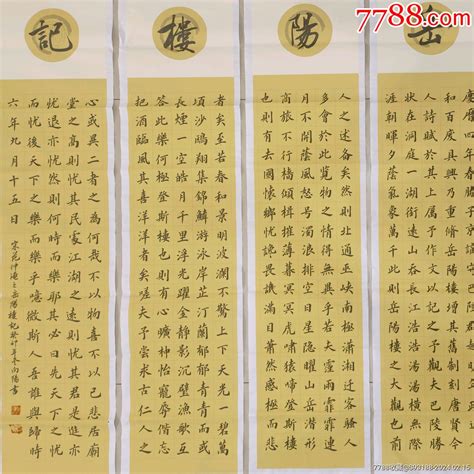 岳
陽
樓
記
慶曆四年春滕子京謫守巴陵郡越明年政通人
和百廢具興乃重脩岳陽樓增其舊制刻唐賢今
人詩賦於其上屬予作文以記之予觀夫巴陵勝
狀在洞庭一湖銜遠山吞長江浩浩湯湯橫無際
涯朝暉夕陰氣象萬千此則岳陽樓之大觀也前
人之述備矣然則北通巫峽南極瀟湘遷客騷人
多會於此覽物之情得無異乎若夫霪雨霏霏連
月不開陰風怒號濁浪排空日星隱曜山岳潛形
商旅不行檣傾楫摧薄暮冥冥虎嘯猿啼登斯樓
也則有去國懷鄉憂讒畏譏滿目蕭然感極而悲
者矣至若春和景明波瀾不驚上下天光一碧萬
頃沙鷗翔集錦鱗游泳岸芷汀蘭郁郁青青而或
長煙一空皓月千里浮光躍金靜影沉璧漁歌互
答此樂何極登斯樓也則有心曠神怡寵辱偕忘
把酒臨風其喜洋洋者矣嗟夫予嘗求古仁人之
心或異二者之為何哉不以物喜不以己悲居廟
堂之高則憂其民處江湖之遠則憂其君是進亦
憂退亦憂然則何時而樂耶其必曰先天下之憂
而憂後天下之樂而樂乎噫微斯人吾誰與歸時
六年九月十五日
宋范仲淹之岳陽樓記 向陽書
7788.com